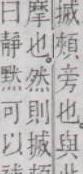 搣頰旁也與此
摩也。然則搣
曰靜默可以